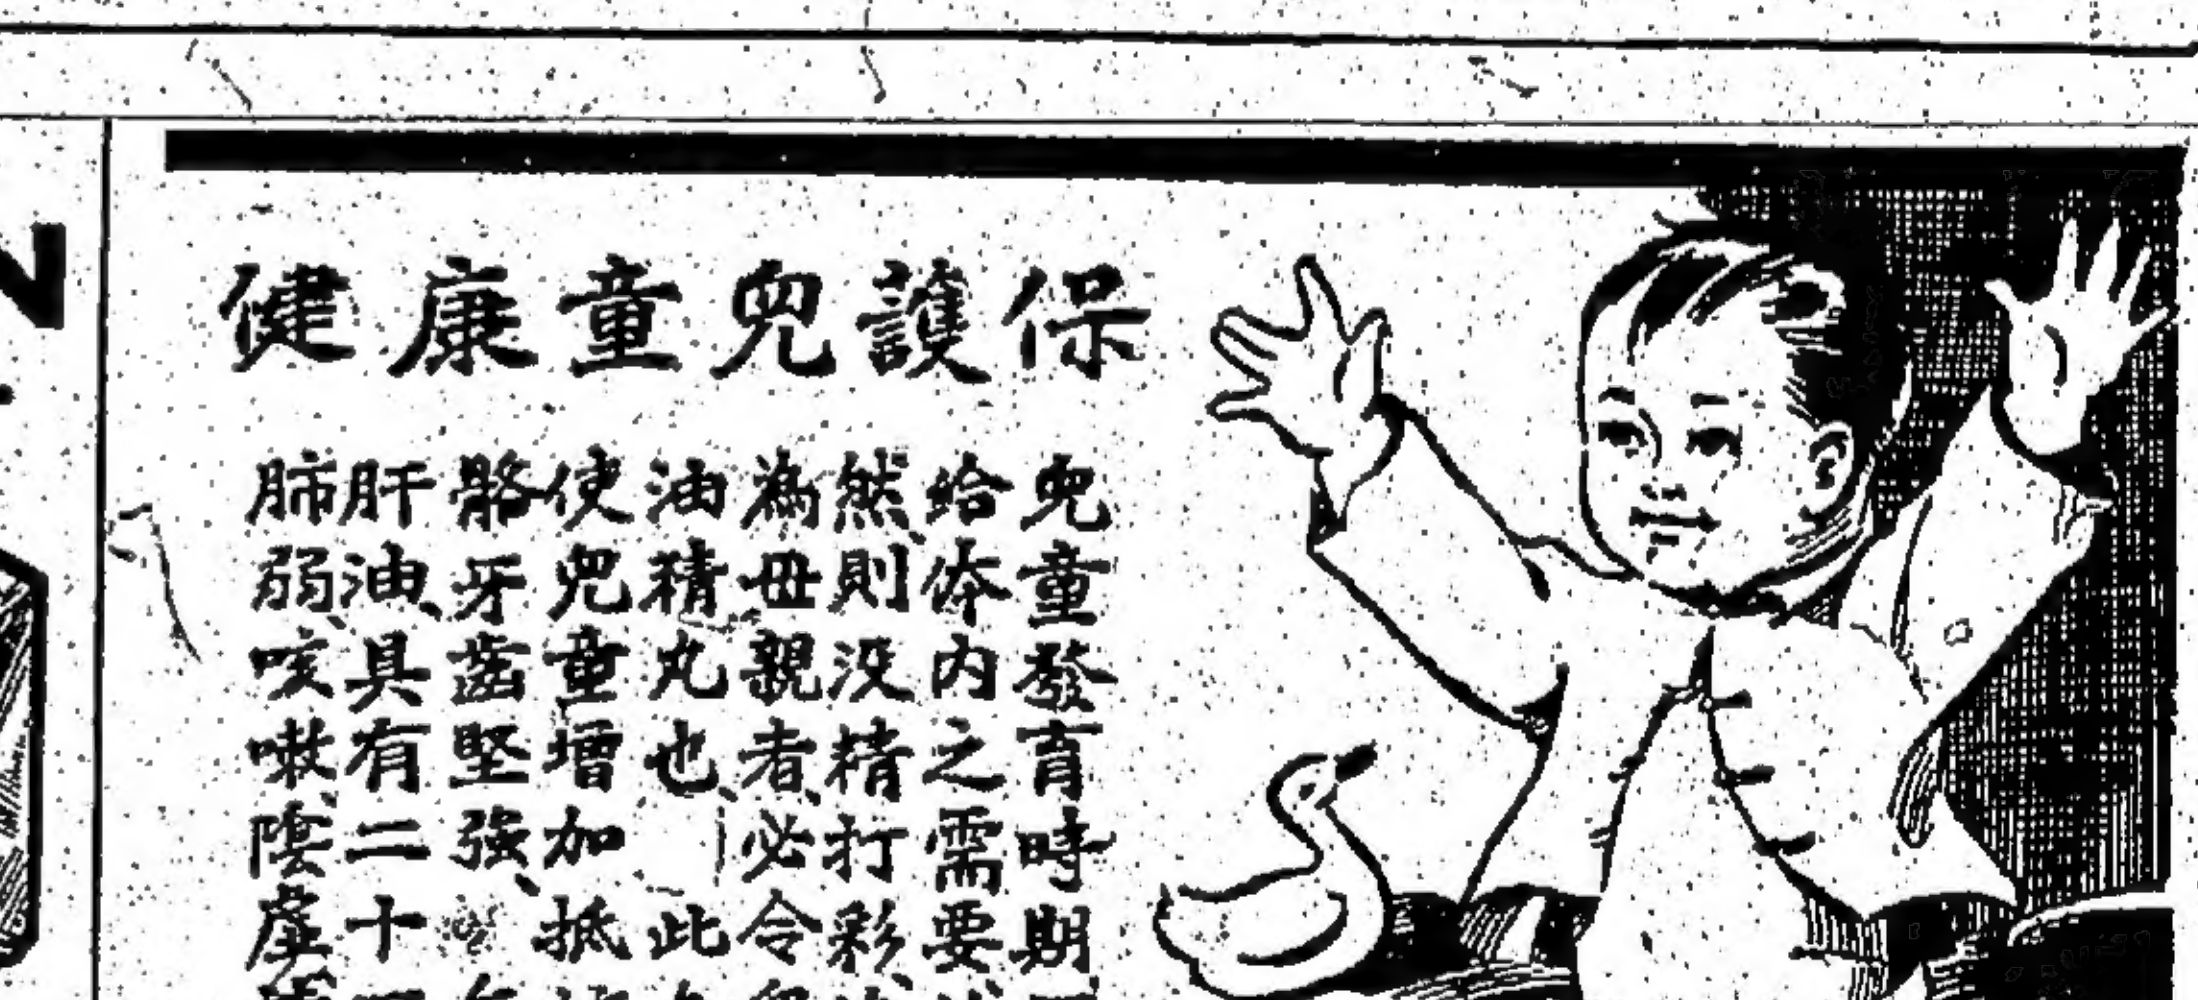 保護兒童康健
兒童發育時期
給体內之需要
然、則沒精打彩、
為母親者、必令
油精丸也、此
使兒童增加抵
骼牙齒堅強、
肝油、具有二十
肺弱、咳嗽、陰虛